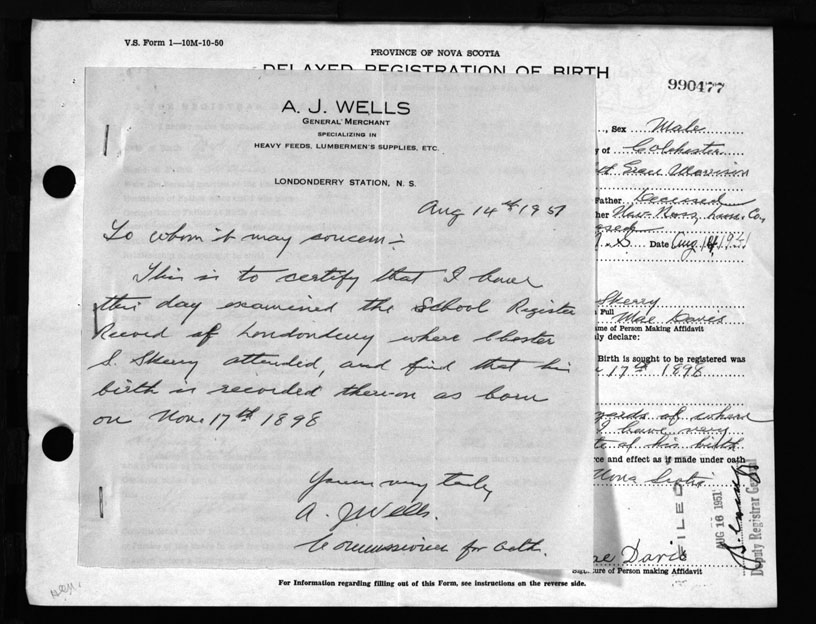 V.S. Form 1—10M-10-50
PROVINCE OF NOVA SCOTIA
DELAYED REGISTRATION OF BIRTH
990477
A. J. WELLS
GENERAL MERCHANT
SPECIALIZING IN
HEAVY FEEDS, LUMBERMEN'S SUPPLIES, ETC.
LONDONDERRY STATION, N. S.
Aug 14th 1951
To whom it may concern:-
This is to certify that I have
this day examined the School Register
Record of Londonderry where Chester
S. Skerry attended, and find that his
birth is recorded thereon as born
on Nov. 17th 1898
Yours very truly
A. J. Wells.
Commissioner for Oath.
Sex Male
of Colchester
Father Deceased
her New Ross, Lun. Co.
N.S Date Aug 14, 1951
Skerry
n Full
Mae Davis
ame of Person Making Affidavit
ly declare:
Birth is sought to be registered was
17th 1898
records of where
I have very
te of his birth
rce and effect as if made under oath
Nova Scotia
FILED
AUG 16 1951
Deputy Registrar General
ae Davis
ure of Person making Affidavit
For Information regarding filling out of this Form, see instructions on the reverse side.